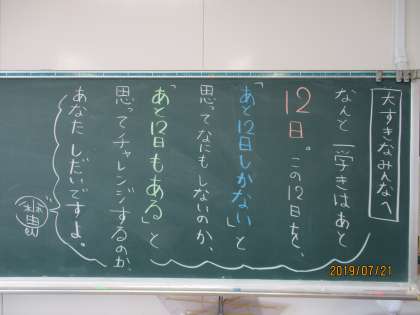 大すきなみんなへ
なんと一学きはあと
12日。この12日を、
「あと12日しかない」と
思ってなにもしないのか、
「あと12日もある」と
思ってチャレンジするのか。
あなたしだいですよ。
2019/07/21